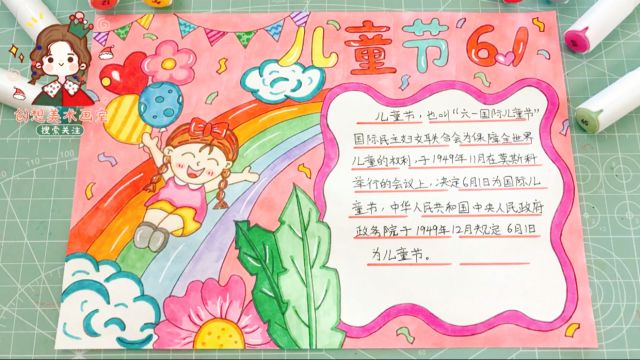 儿童节 6.1
创想美术画房
搜索关注
儿童节，也叫“六一国际儿童节”
国际民主妇女联合会为保障全世界
儿童的权利，于1949年11月在莫斯科
举行的会议上，决定6月1日为国际儿
童节，中华人民共和国中央人民政府
政务院于1949年12月规定6月1日
为儿童节。